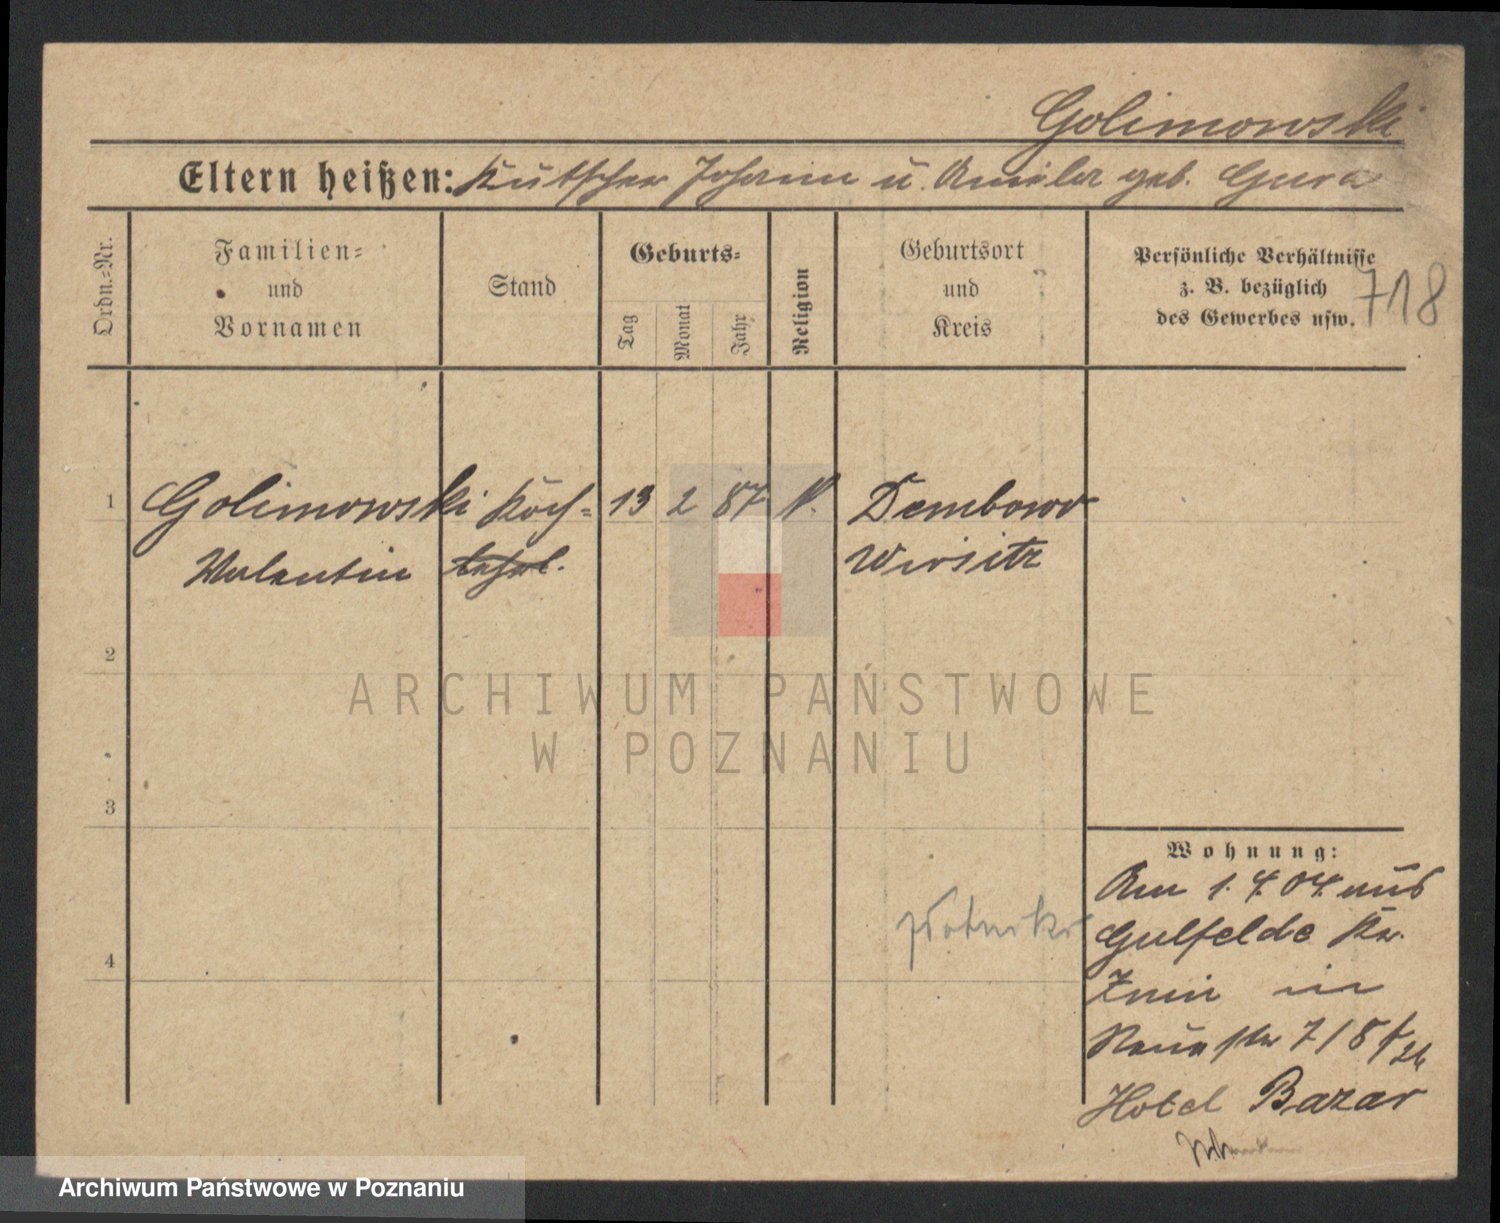 Golimowski
Eltern heißen: Kutscher Johann u. Amelia geb. Gura
Ordn.=Nr.
Familien=
und
Vornamen
Stand
Geburts=
Tag
Monat
Jahr
Religion
Geburtsort
und
Kreis
Persönliche Verhältnisse
z. B. bezüglich
des Gewerbes usw.
718
1 Golimowski Koch= 13 2 87 k. Dembowo
Valentin lehrl. Wirsitz
2
ARCHIWUM PAŃSTWOWE
W POZNANIU
3
Wohnung:
Am 1.4.04 aus
Gulfelde Kr.
4
Znin in
Neue str 7/8
Hotel Bazar
Archiwum Państwowe w Poznaniu